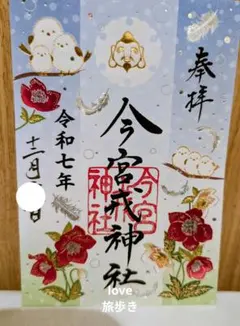 奉拝
今宮戎神社
令和七年
十二月 日
今宮
神社
love
旅歩き